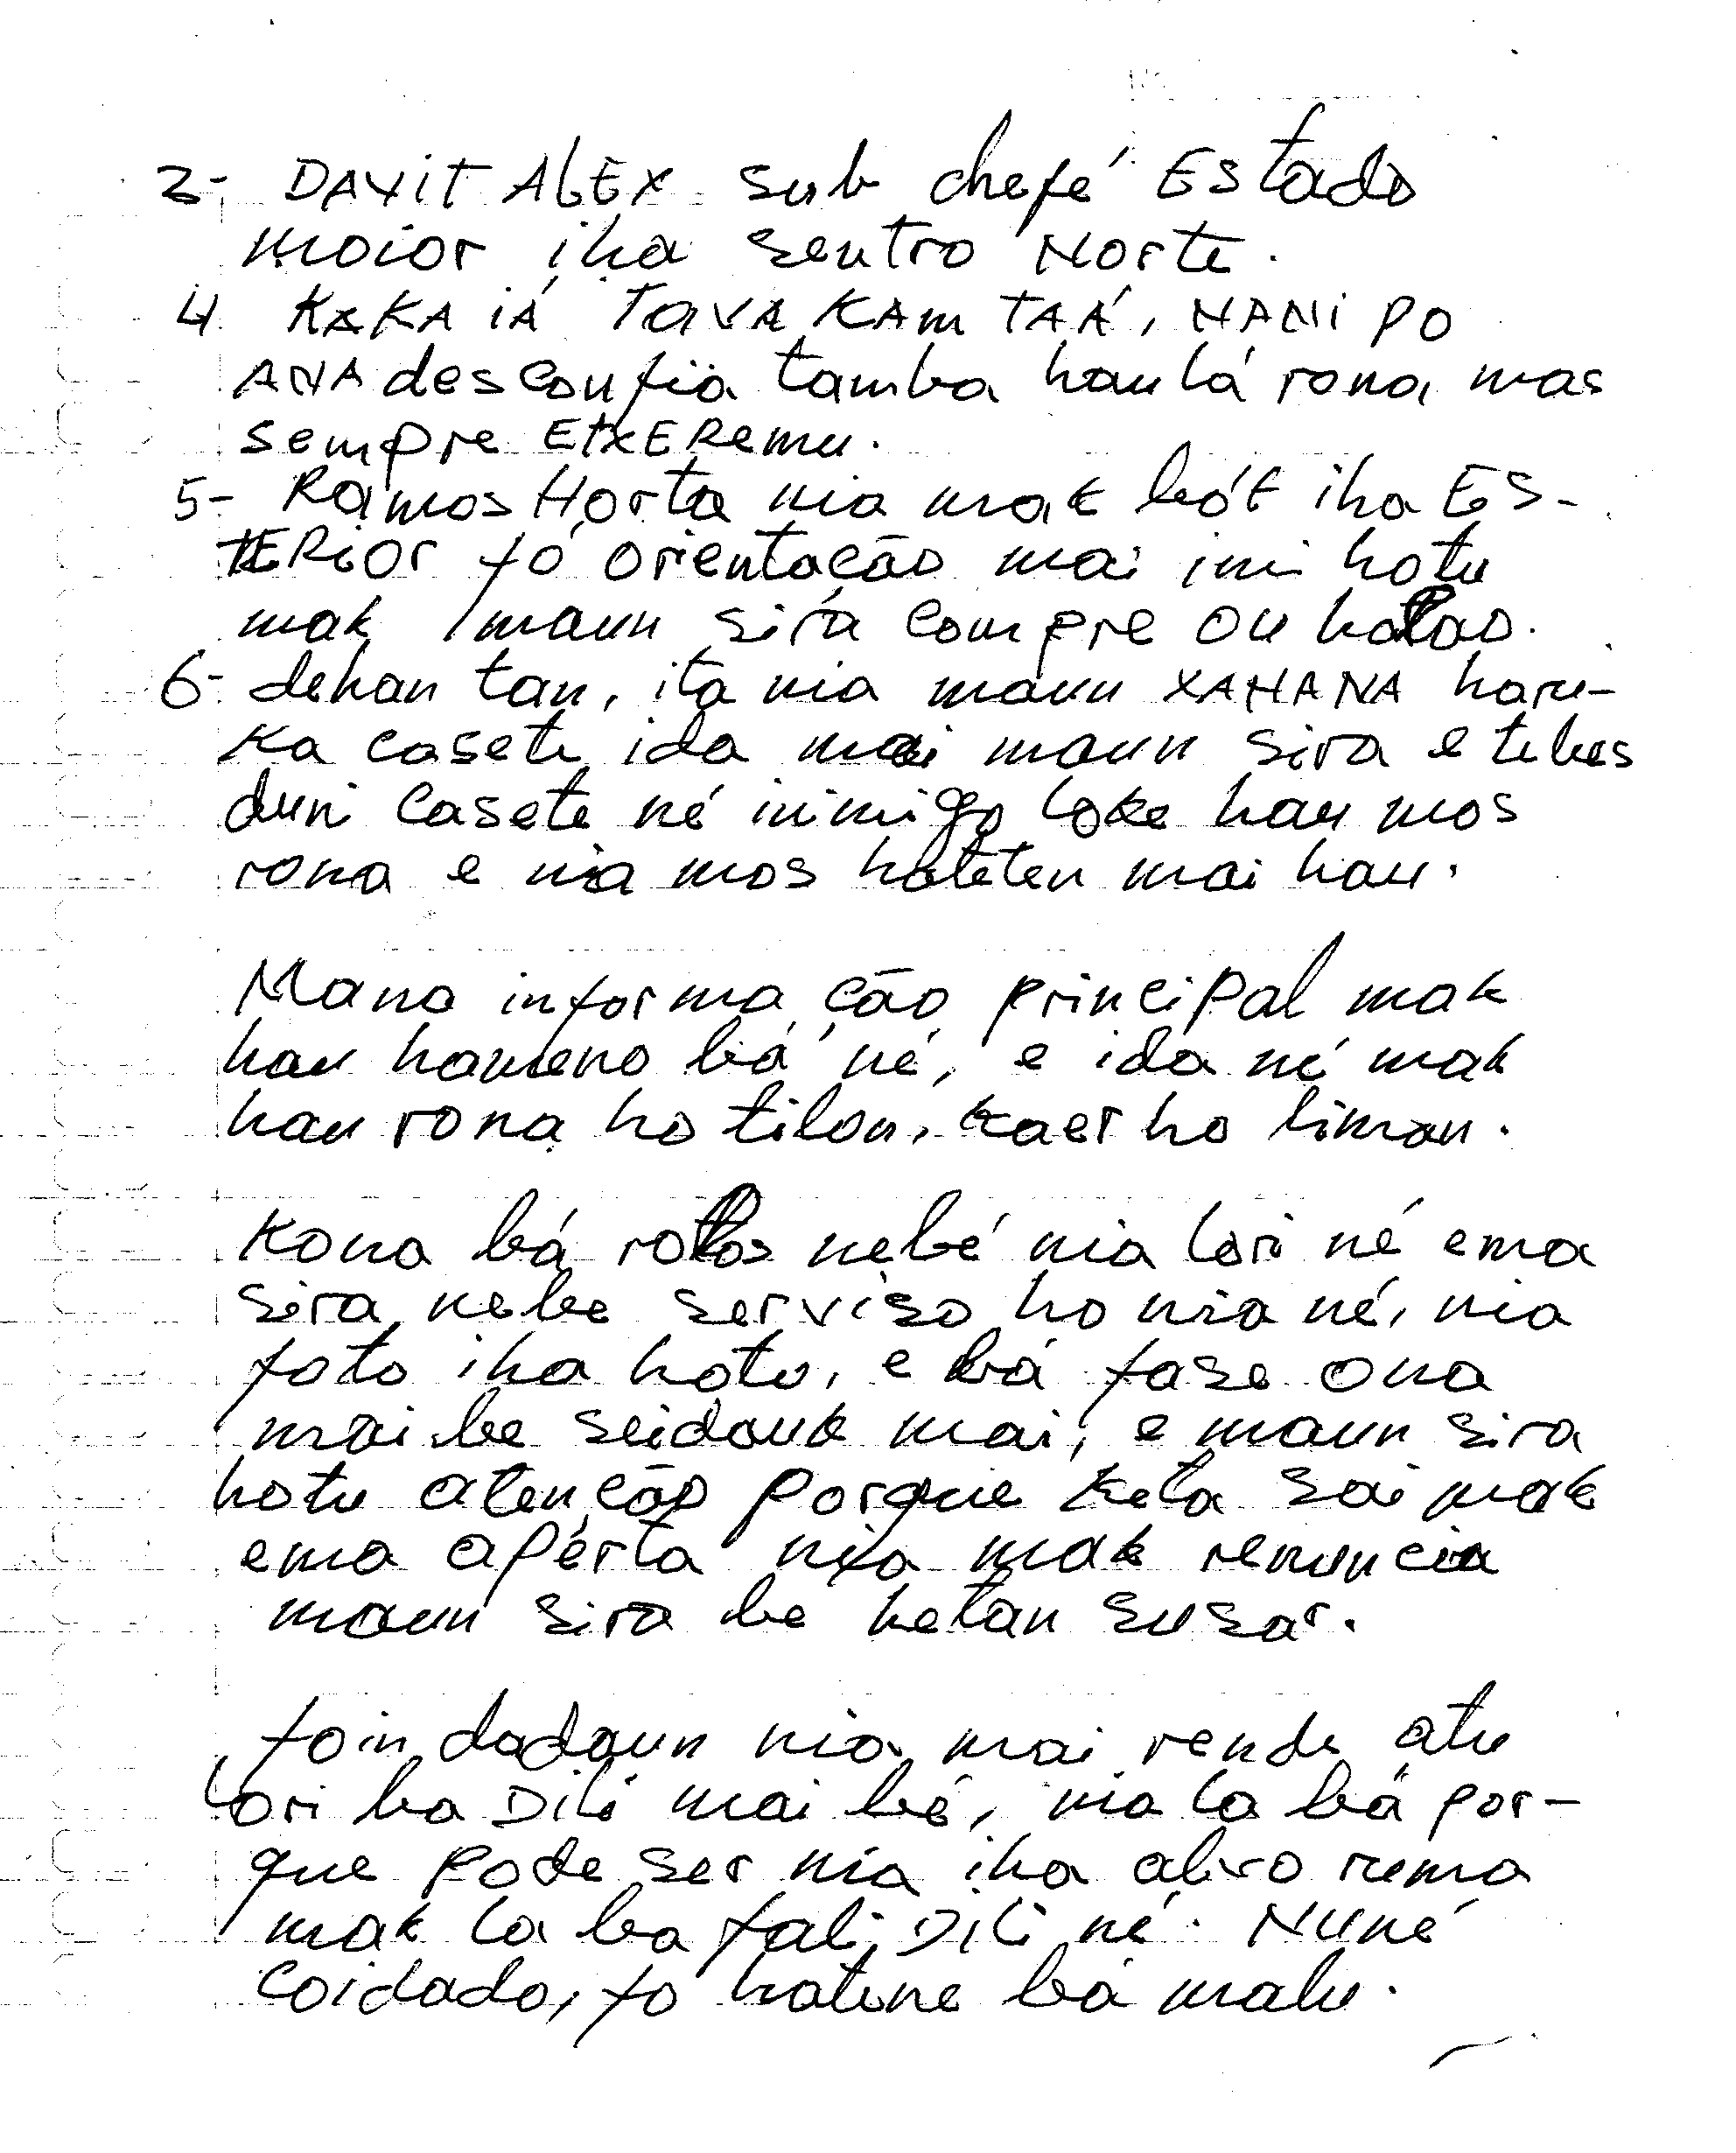 3- DAVIT ALEX sub chefé Estado
moior iha sentro Norte.
4 KAKA IÁ TAVA KAM TAÁ, NANI PO
ANA desconfia tamba hau lá rona, mas
sempre EtxERemu.
5- Ramos Horta nia mak bót iha ES-
TERIOr fó orientacão mai imi hotu
mak maun sira compre ou halao.
6- dehan tan, ita nia maun XANANA haru-
ka casete ida mai maun sira e tebes
duni casete né inimigo loke hau mos
rona e nia mos hateten mai hau.
Mana informa ção principal mak
hau hameno bá né, e ida né mak
hau rona ho tilon, kaer ho liman.
Kona bá rollos nebé nia lori né ema
sira nebe serviso ho nia né, nia
foto iha hotu, e bá fase ona
mai be seidauk mai, e maun sira
hotu atenção porque keta sai mak
ema apérta nia mak renuncia
maun sira be hetan susar.
foin dadaun nia mai rende atu
lori ba Dili mai bé, nia la bá por-
que pode ser nia iha alvo ruma
mak la ba fali Dili né. Nuné
coidado, fo hatene bá malu.